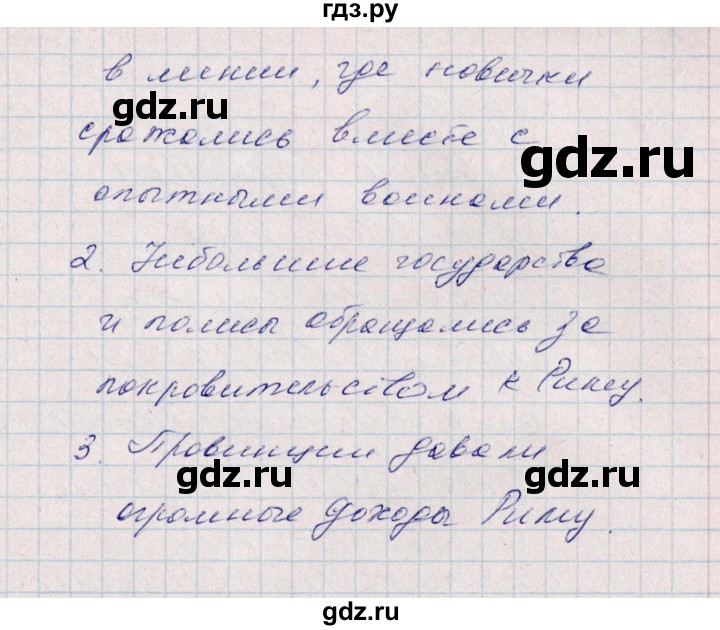 гдз.ру
в линии, где новички
gdz.ru
сражались вместе с
gdz.ru
опытными воинами.
2. Небольшие государства
и полисы обращались за
покровительством к Риму.
3. Провинции давали
gdz.ru
gdz.ru
огромные доходы Риму.
gdz.ru